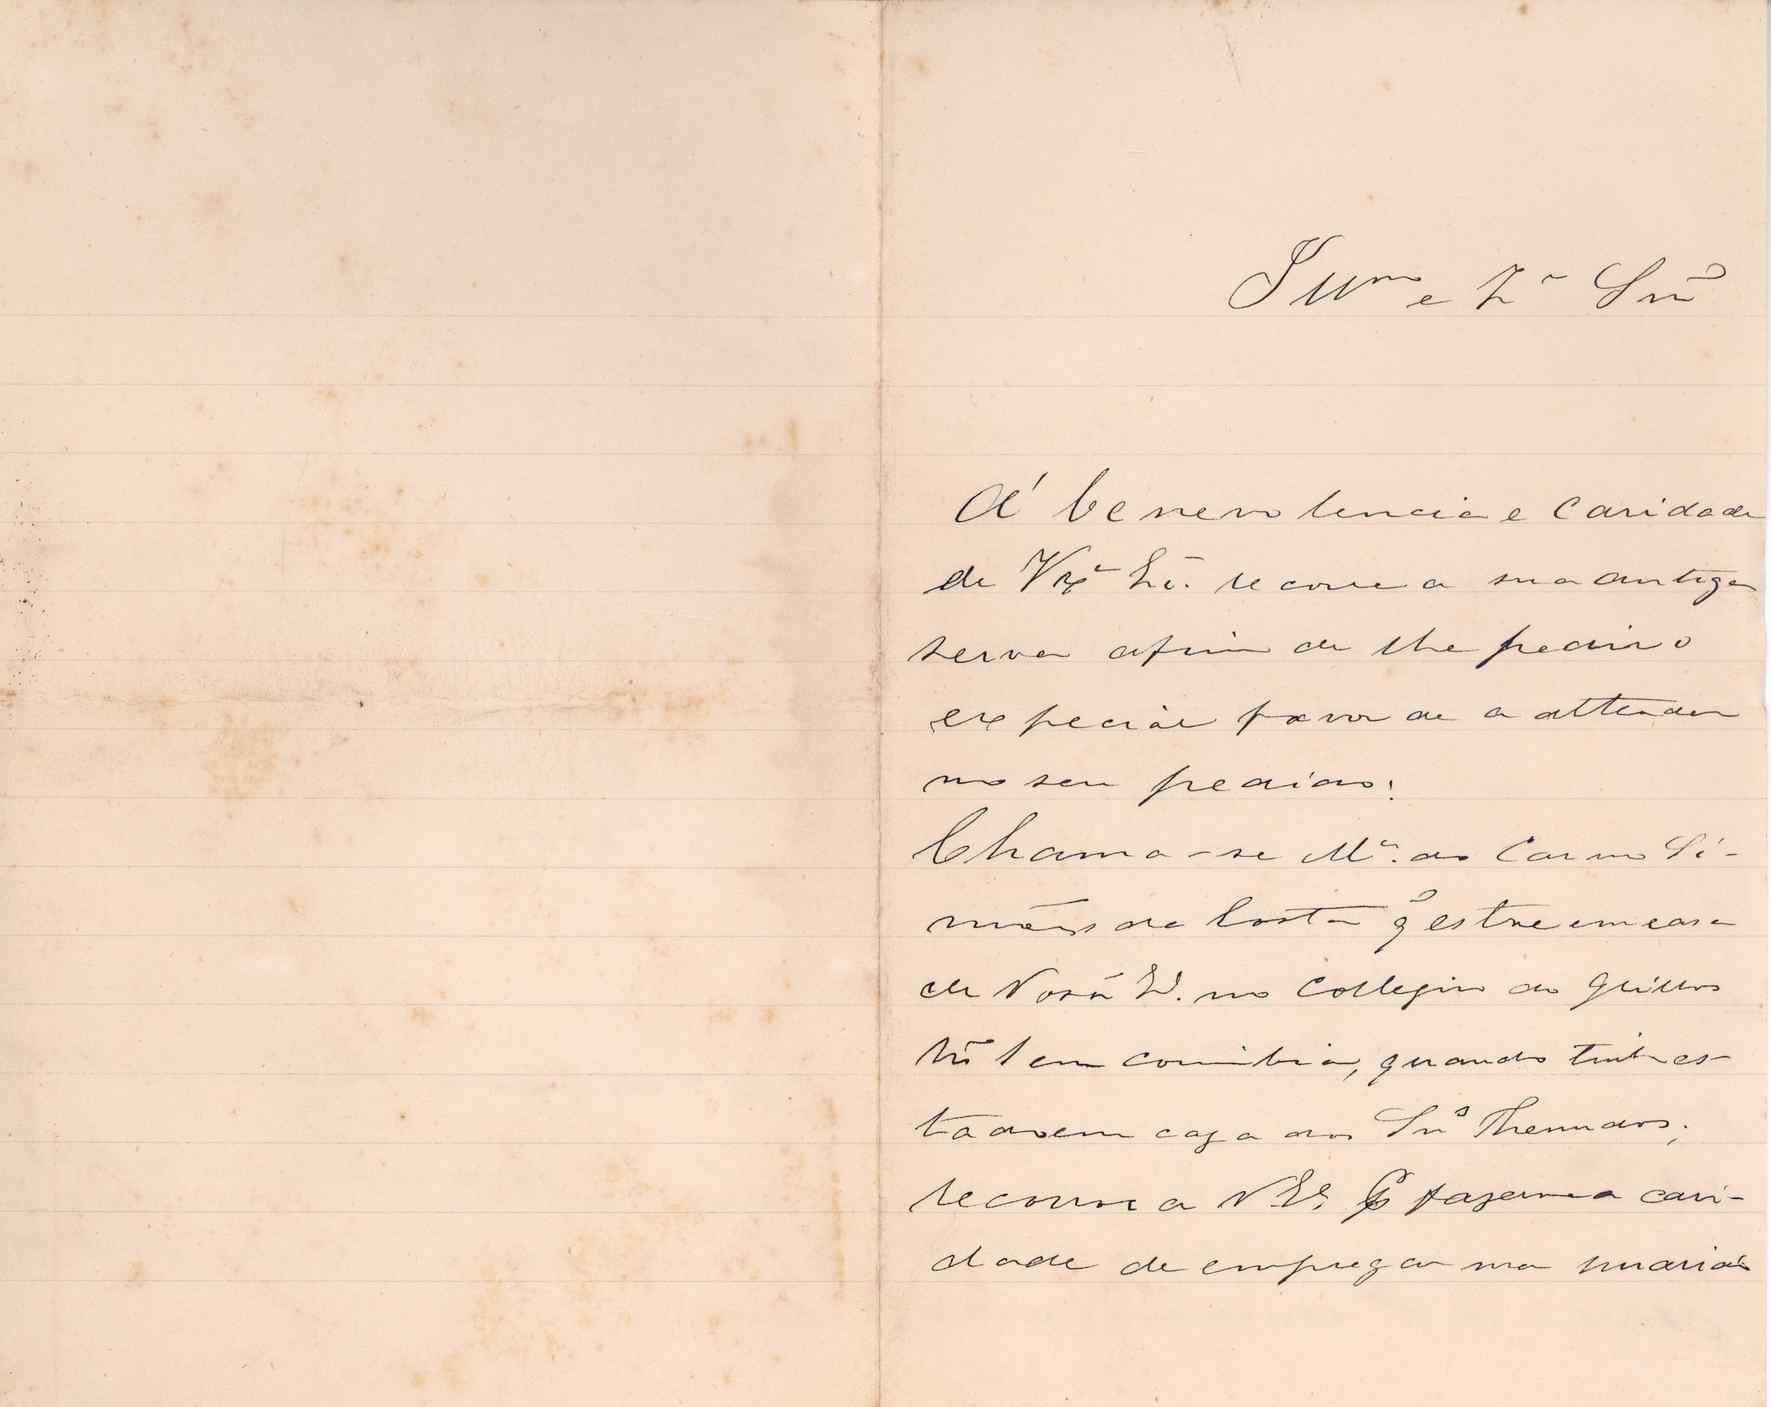 Illmo e Exmo Snr
Á benevolencia e caridade
de Vxª Exª. recorre a sua antiga
serva afim de lhe pedir o
expecial favor de a attender
no seu pedido:
Chama-se Mª. do Carmo Si-
mões da Costa q̃ estve em casa
de Vossa Eª. no Collegio do
em coimbra, quando tinha es-
tado em caza dos Snrs
recorre a V. Eª. fazerme a cari-
dade de empregar